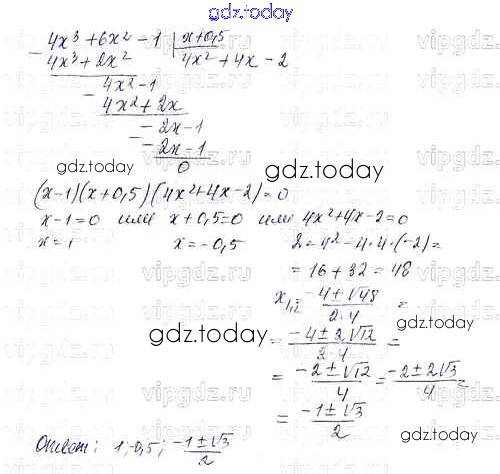 gdz.today
4x³+6x²-1 | x+0,5
- 4x³+2x² | 4x²+4x-2
4x²-1
- 4x²+2x
-2x-1
- -2x-1
0
gdz.today
gdz.today
(x-1)(x+0,5)(4x²+4x-2)=0
x-1=0 или x+0,5=0 или 4x²+4x-2=0
x=1 x=-0,5 D=4²-4·4·(-2)=
=16+32=48
x₁,₂ = (-4±√48)/(2·4) =
gdz.today
gdz.today
= (-4±2√12)/(2·4) =
= (-2±√12)/4 = (-2±2√3)/4 =
= (-1±√3)/2
Ответ: 1; -0,5; (-1±√3)/2
gdz.today